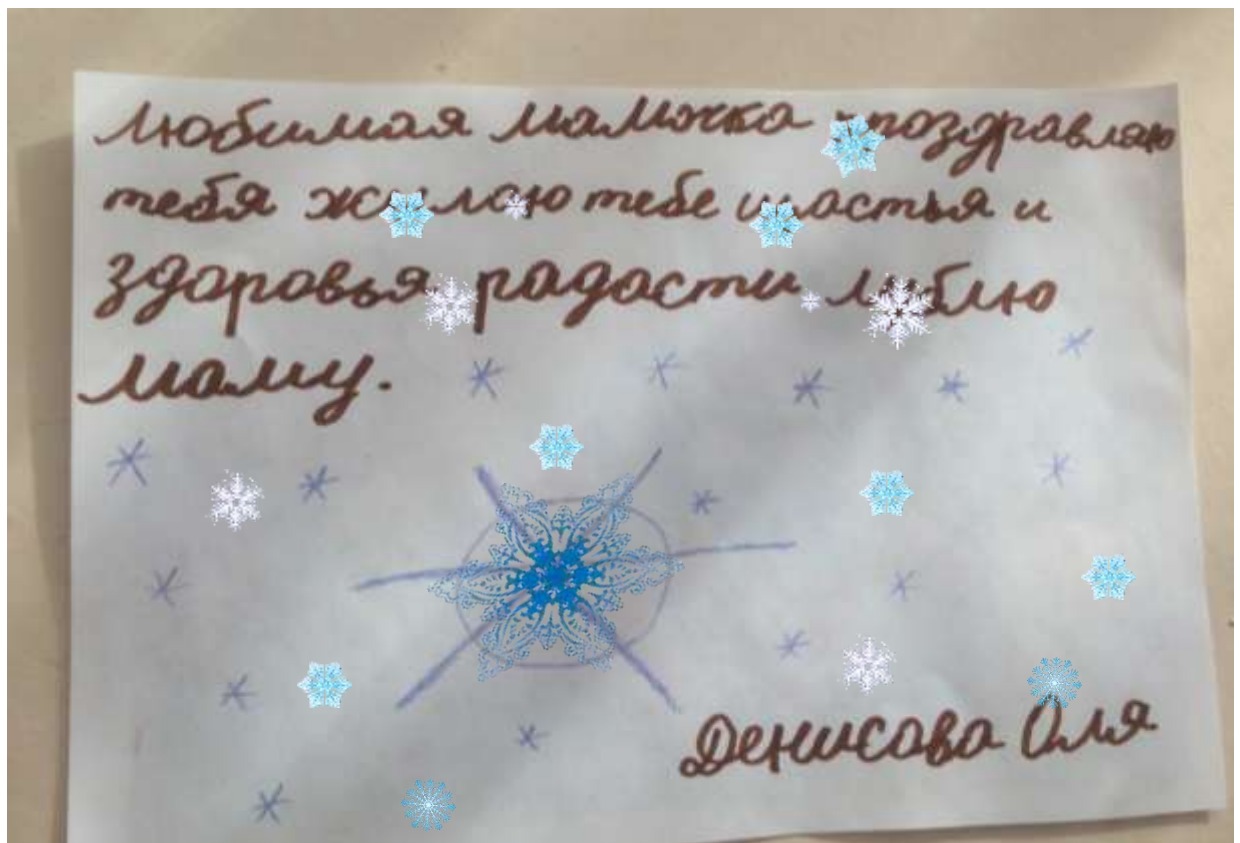 Любимая мамочка поздравляю
тебя желаю тебе счастья и
здоровья радости люблю
маму.
Денисова Оля